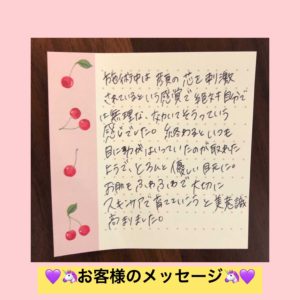 施術中は顔の芯を刺激
されているという感覚で絶対自分で
は無理だなかいてそういう
感じでした。終わるといつも
目に動
がはいっていたのが取れた
ようで、とろんと優しい目元に。
お肌もふわふわで大切に
スキンケアで育てていこうと美意識
高まりました。
💜🦄お客様のメッセージ🦄💜